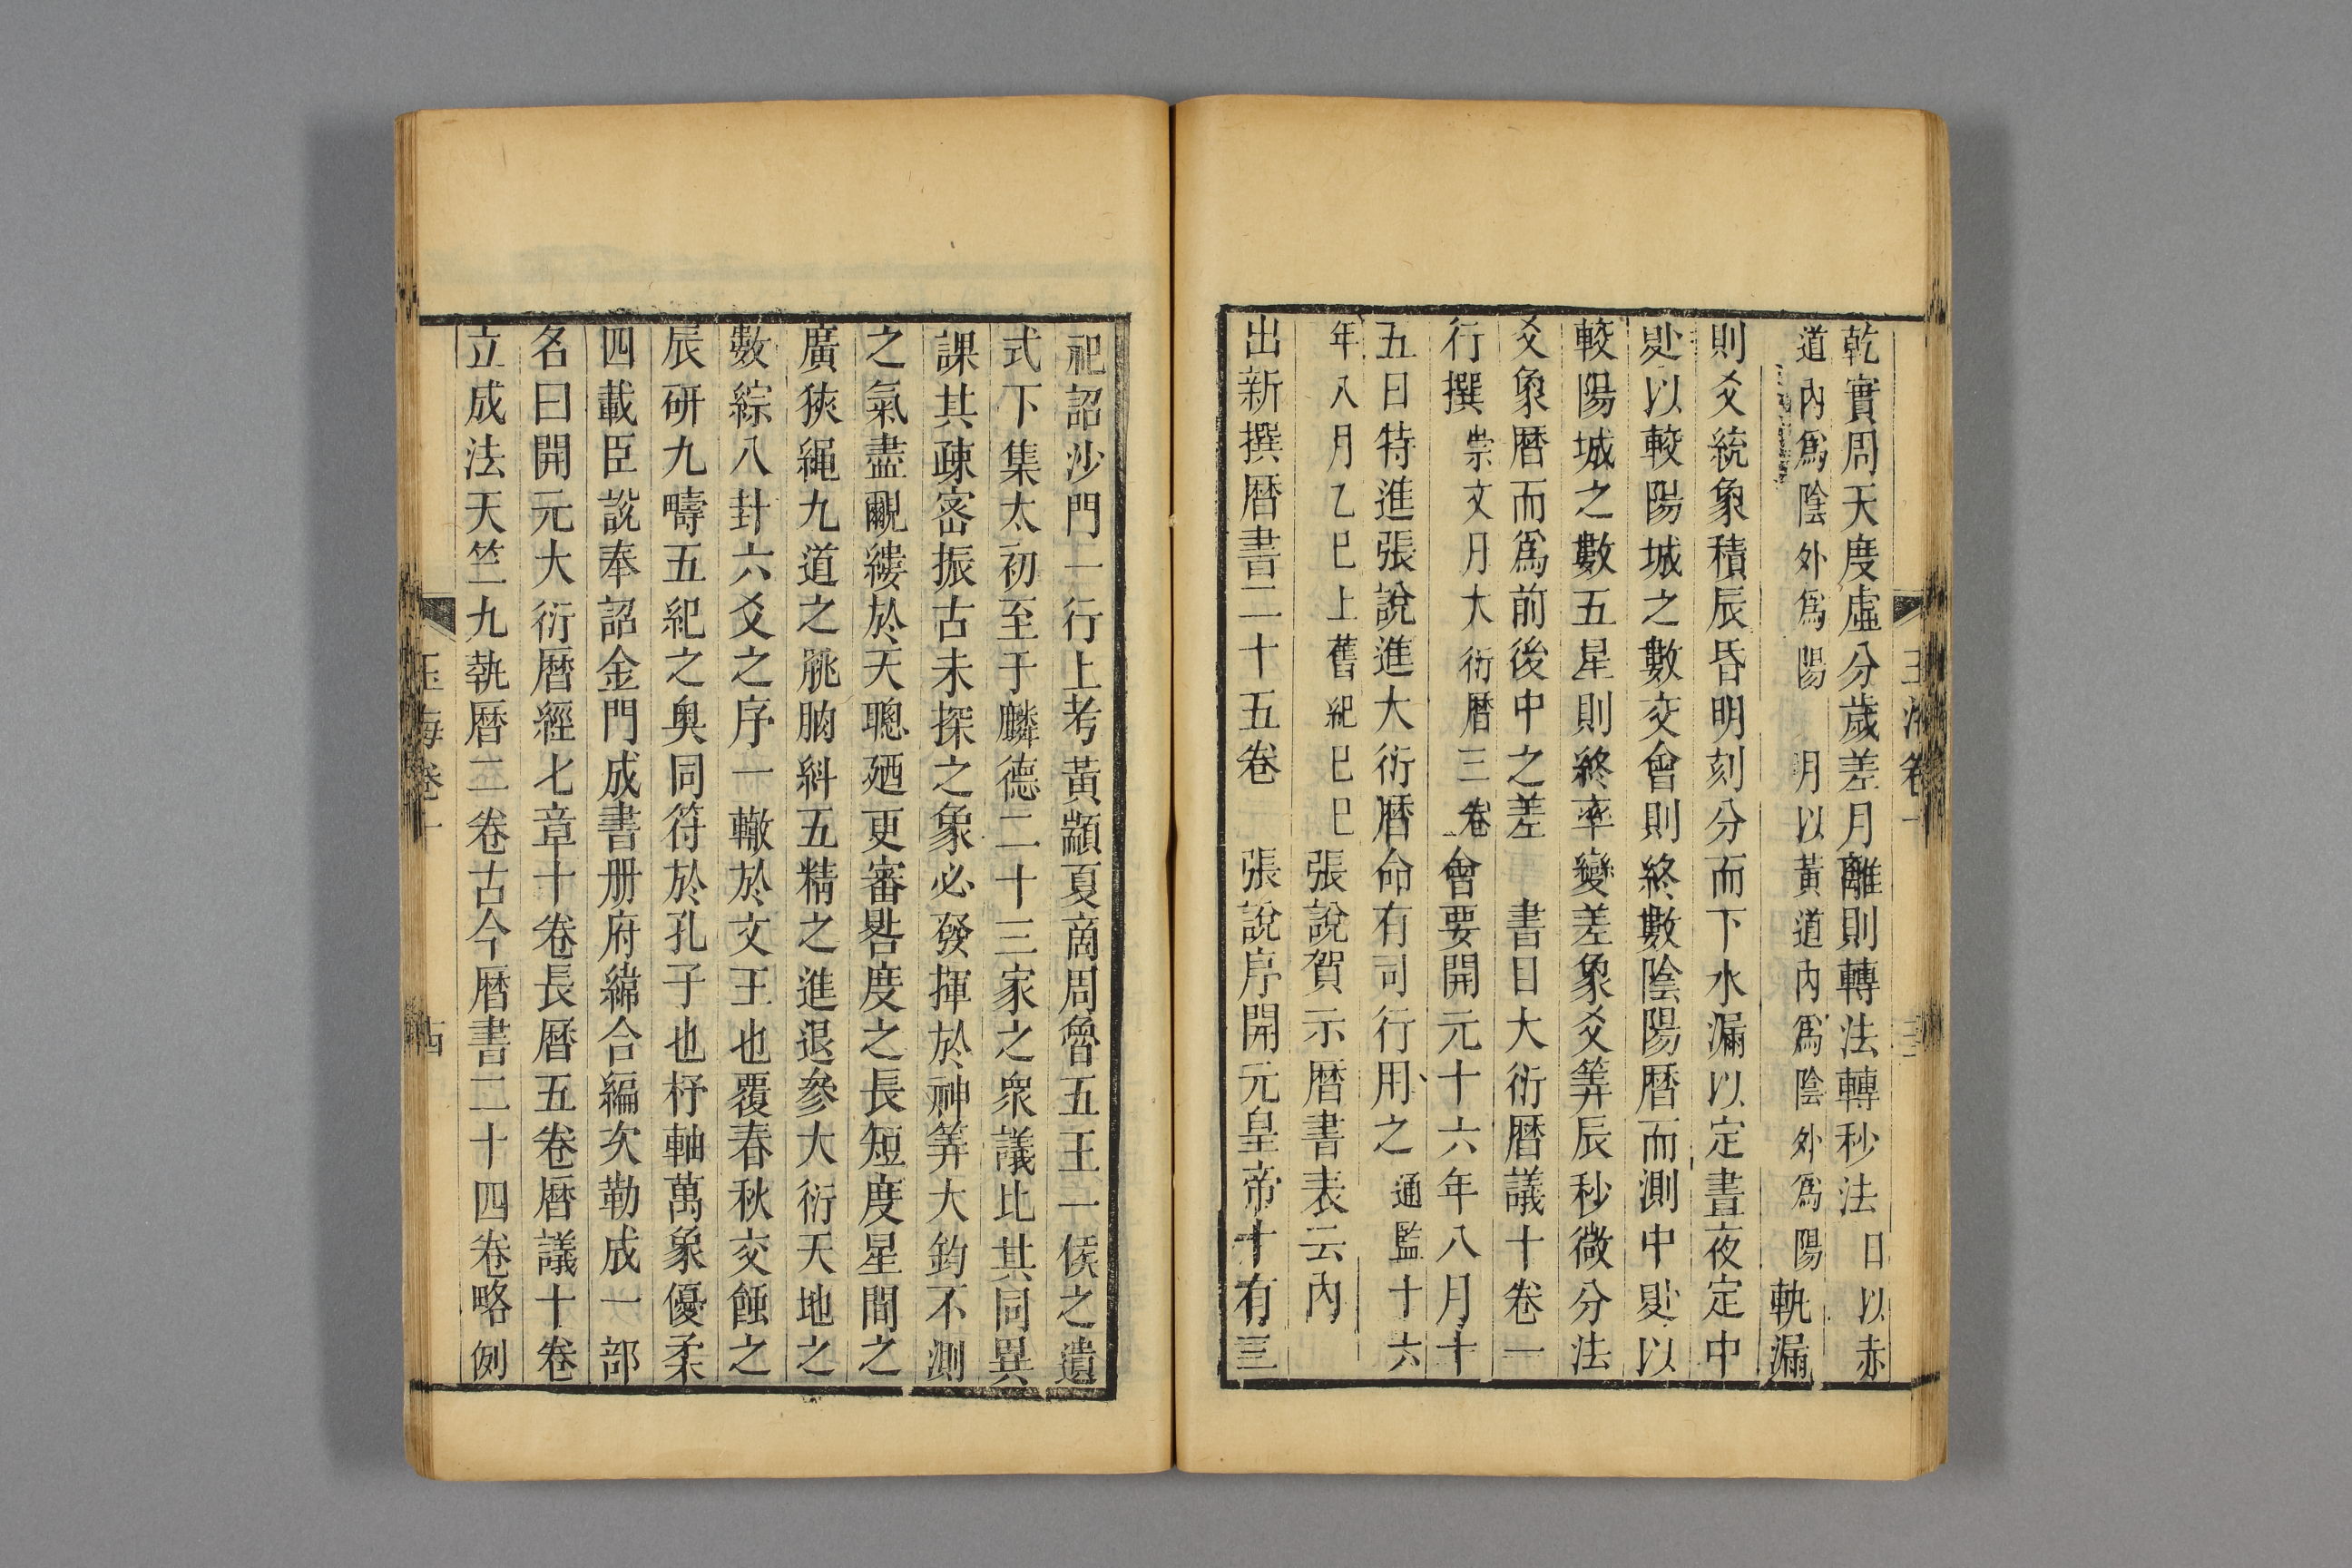 乾實周天度虛分歲差月離則轉法轉秒法日以赤
道內爲陰外爲陽 月以黃道內爲陰外爲陽軌漏
則爻統象積辰昏明刻分而下水漏以定晝夜定中
晷以較陽城之數交會則終數陰陽曆而測中晷以
較陽城之數五星則終率變差象爻筭辰秒微分法
爻象曆而爲前後中之差 書目大衍曆議十卷一
行撰崇文目大衍曆三卷會要開元十六年八月十
五日特進張說進大衍曆命有司行用之通監十六
年八月乙巳上舊紀己巳張說賀示曆書表云內
出新撰曆書二十五卷 張說序開元皇帝十有三
祀詔沙門一行上考黃顓夏商周魯五王一侯之遺
式下集太初至于麟德二十三家之衆議比其同異
課其疎密振古未探之象必發揮於神筭大鈞不測
之氣盡覼縷於天聰廼更審晷度之長短度星間之
廣狹繩九道之朓朒糾五精之進退參大衍天地之
數綜八卦六爻之序一轍於文王也覆春秋交蝕之
辰研九疇五紀之奥同符於孔子也杼軸萬象優柔
四載臣說奉詔金門成書册府緜合編次勒成一部
名曰開元大衍曆經七章十卷長曆五卷曆議十卷
立成法天竺九執曆二卷古今曆書二十四卷略例
玉海卷十 古